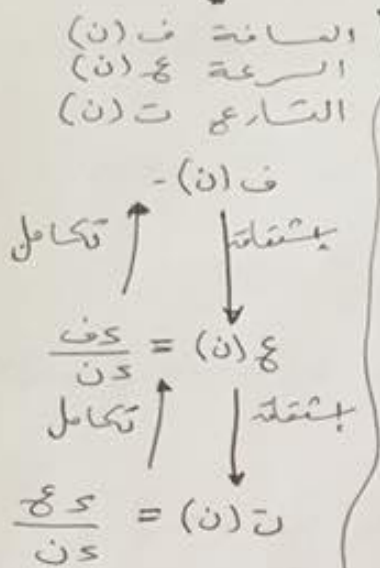 المسافة ف (ن)
السرعة ع (ن)
التسارع ت (ن)
ف (ن) -
تكامل
إشتقاق
ع (ن) = ءف / ءن
تكامل
إشتقاق
ت (ن) = ءع / ءن